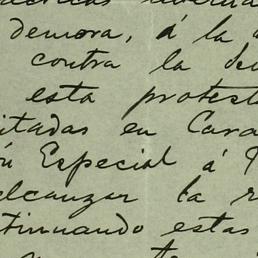 demora, á la
contra la
esta protest
itadas en Cara
ón Especial á
alcanzar la r
tinuando estas